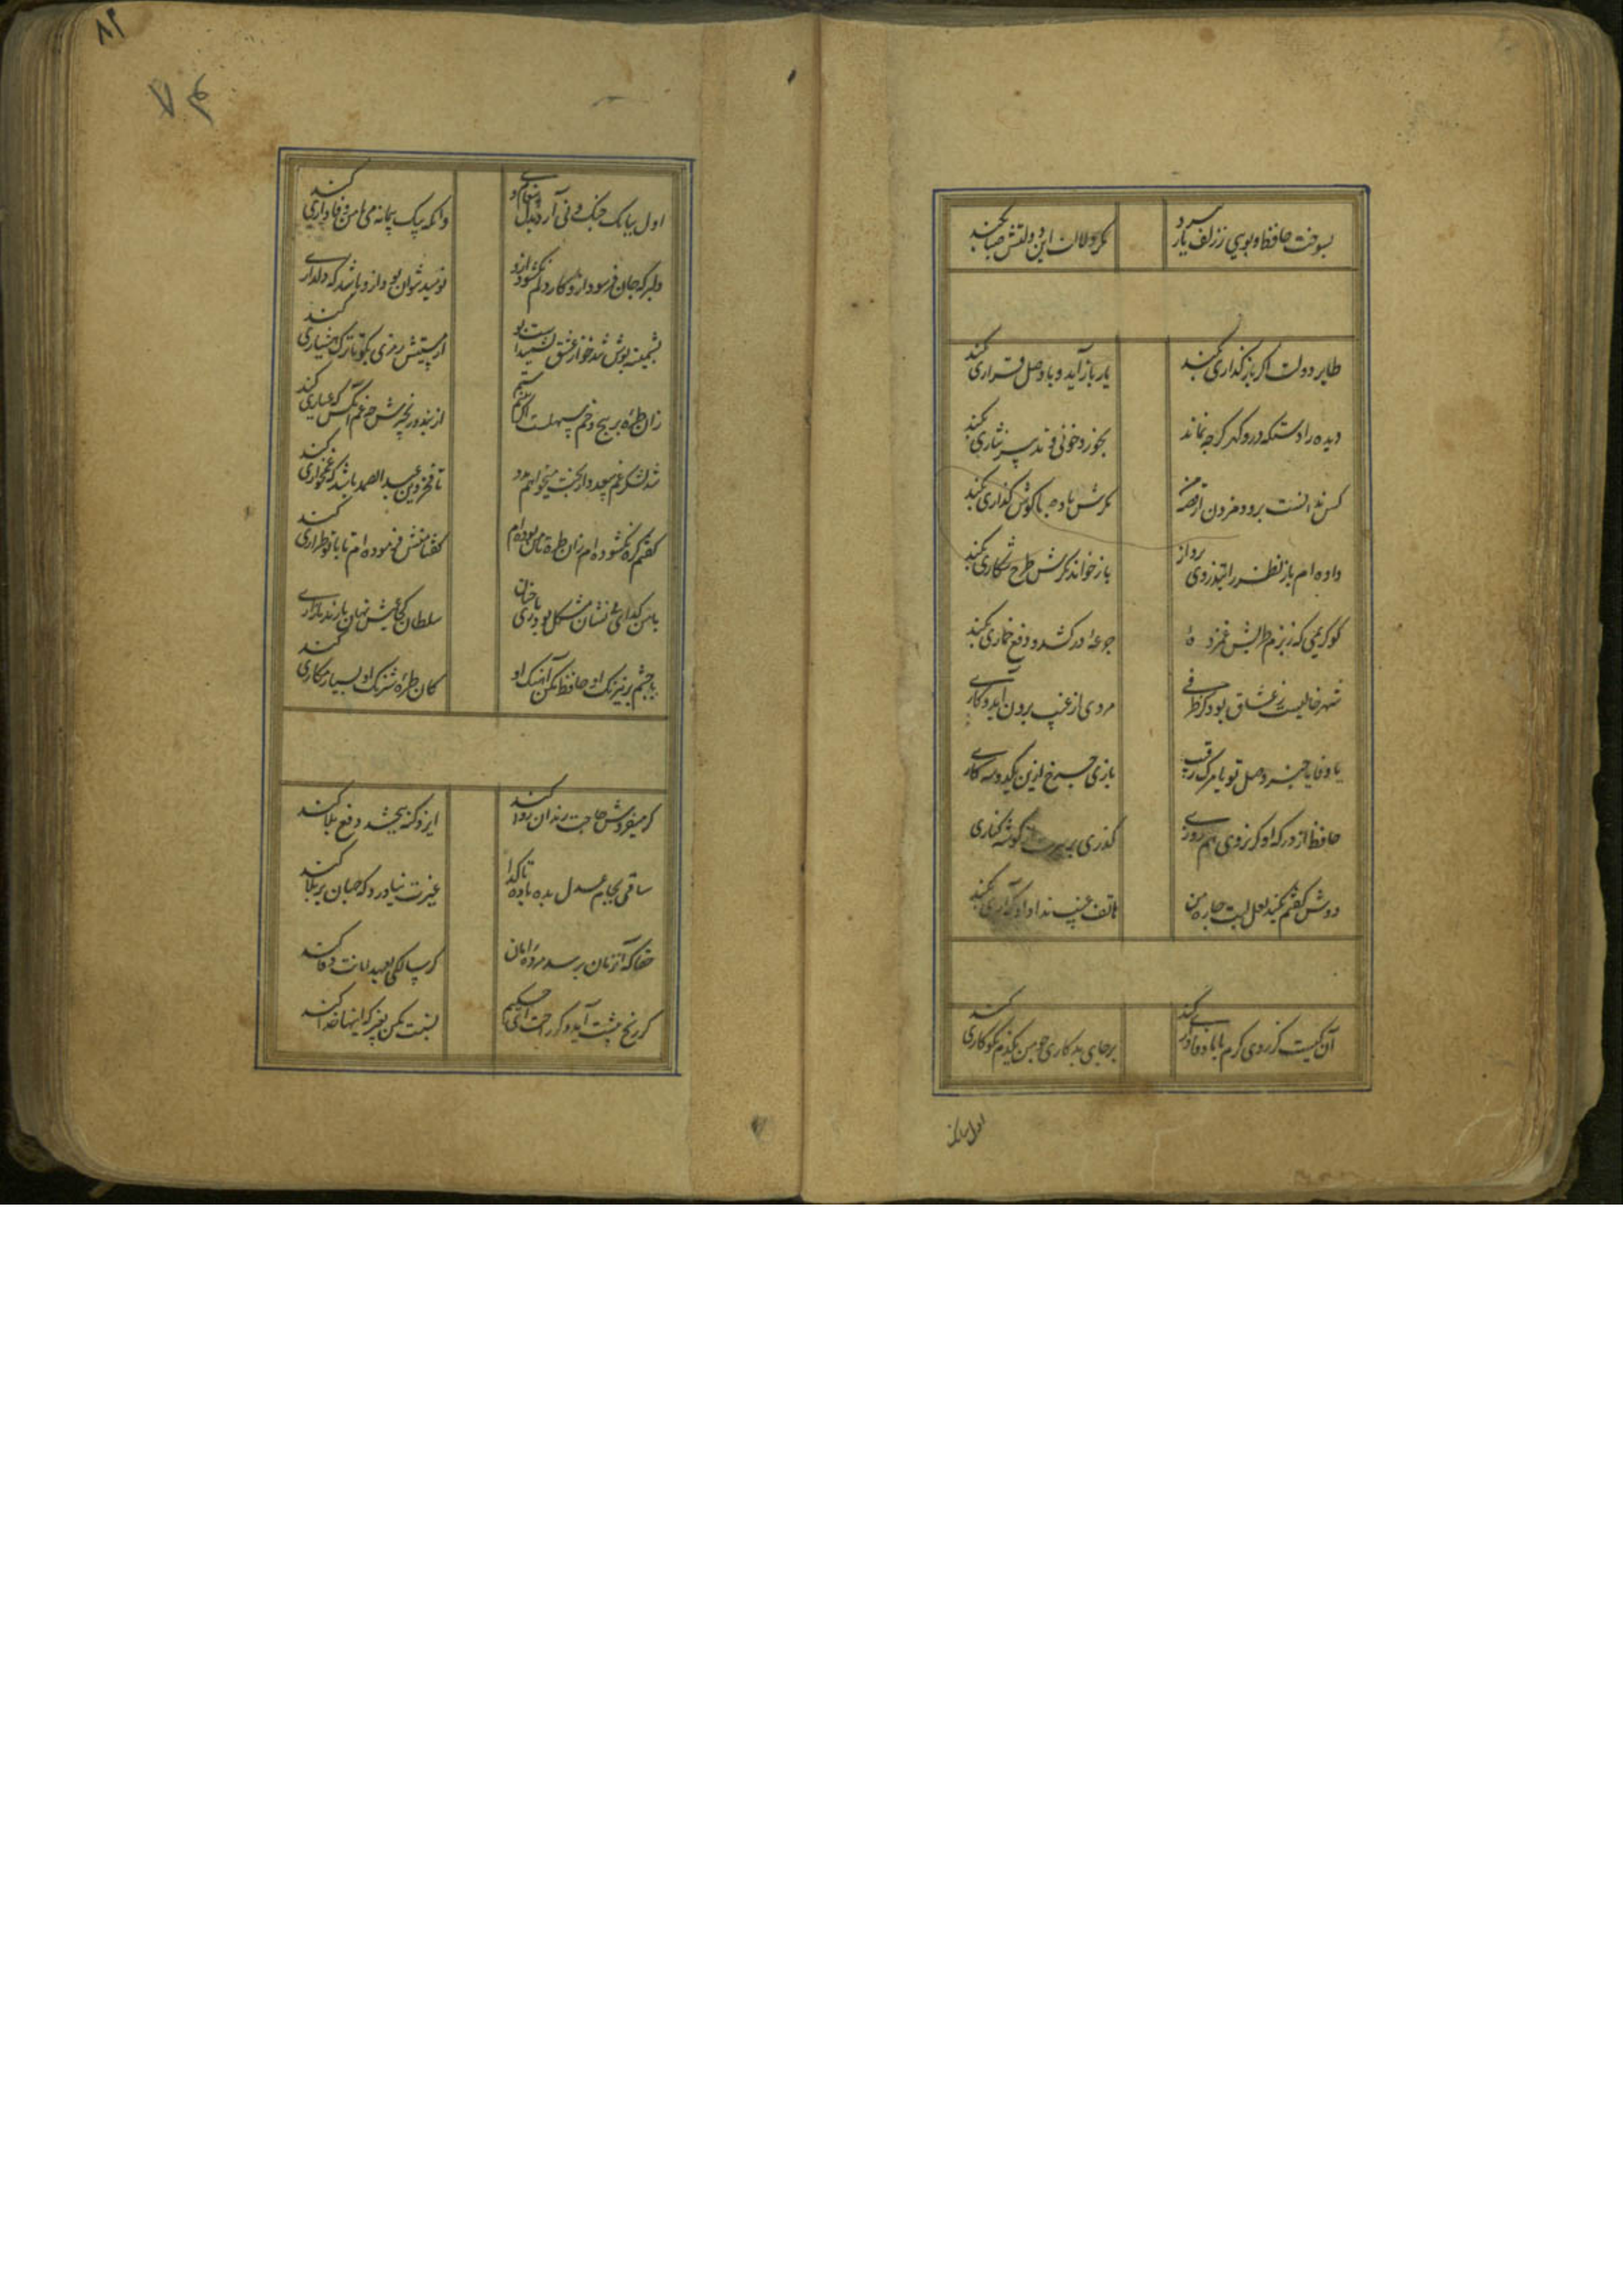 بسوخت حافظ و بویی ز زلف یار نبرد
مکر دلالت این دولتش صبا بکند
طایر دولت اکر باز کذاری بکند
یار باز آید و با وصل قراری بکند
دیده را دستکه در و کهر کرچه نماند
بخورد خونی و تدبیر نثاری بکند
کس نیارد بر او دم زدن از قصه من
مکرش باد صبا کوش کذاری بکند
داده ام باز نظر را بتذروی پرواز
باز خواند مکرش طرح شکاری بکند
کو کریمی که ز بزم طربش غمزده
جرعه درکشد و دفع خماری بکند
شهر خالیست ز عشاق بود کز طرفی
مردی از غیب برون آید و کاری
یا وفا یا خبر وصل تو یا مرک رقیب
بازی چرخ ازین یکدوسه کاری
حافظا از در که او کر نروی هم روزی
کذری بر سرت کوشه کناری
دوش کفتم بکند لعل لبت چاره من
هاتف غیب ندا داد که آری بکند
آن کیست کز روی کرم با ما وفاداری کند
بر جای بدکاری چو من یکدم نکوکاری کند
اول ببانک
۸۲
۷۴
اول ببانک چنک و نی آرد بدل پیغام وی
وانکه بیک پیمانه می با من وفاداری کند
دلبر که جان فرسود ازو کار دلم نکشود ازو
نومید نتوان بود ازو باشد که دلداری کند
پشمینه پوش تندخو از عشق نشنیدست بو
از مستیش رمزی بکو تا ترک هشیاری کند
زان طره پر پیچ و خم سهلست اکر بینم ستم
از بند و زنجیرش چه غم آنکس که عیاری کند
شد لشکر غم بیعدد از بخت میخواهم مدد
تا فخر دین عبدالصمد باشد که غمخواری کند
کفتم کره نکشوده ام زان طره تا من بوده ام
کفتا منش فرموده ام تا با تو طراری کند
با من کدای بی نشان مشکل بود یاری چنان
سلطان کجا عیش نهان با رند بازاری کند
با چشم پر نیرنک او حافظ مکن آهنک او
کان طره شبرنک او بسیار مکاری کند
کر میفروش حاجت رندان روا کند
ایزد کنه ببخشد و دفع بلا کند
ساقی بجام عدل بده باده تا کدا
غیرت نیاورد که جهان پر بلا کند
حقا کزین غمان برسد مژده امان
کر سالکی بعهد امانت وفا کند
کر رنج پیشت آید و کر راحت ای حکیم
نسبت مکن بغیر که اینها خدا کند